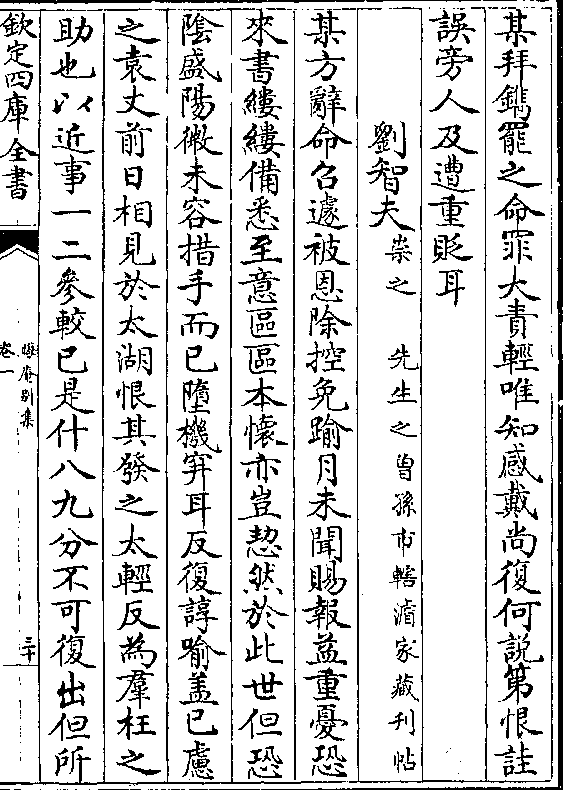 某拜鐫罷之命罪大責輕唯知感戴尚復何說第恨詿
誤旁人及遭重貶耳
劉智夫崇之 先生之曾孫市轄濬家藏刊帖
某方辭命召遽被恩除控免踰月未聞賜報益重憂恐
來書縷縷備悉至意區區本懷亦豈恝然於此世但恐
陰盛陽微未容措手而已墮機穽耳反復諄喻盖已慮
之袁丈前日相見於太湖恨其發之太輕反為羣枉之
助也以近事一二參較已是什八九分不可復出但所
欽定四庫全書
晦庵别集
卷一
三十